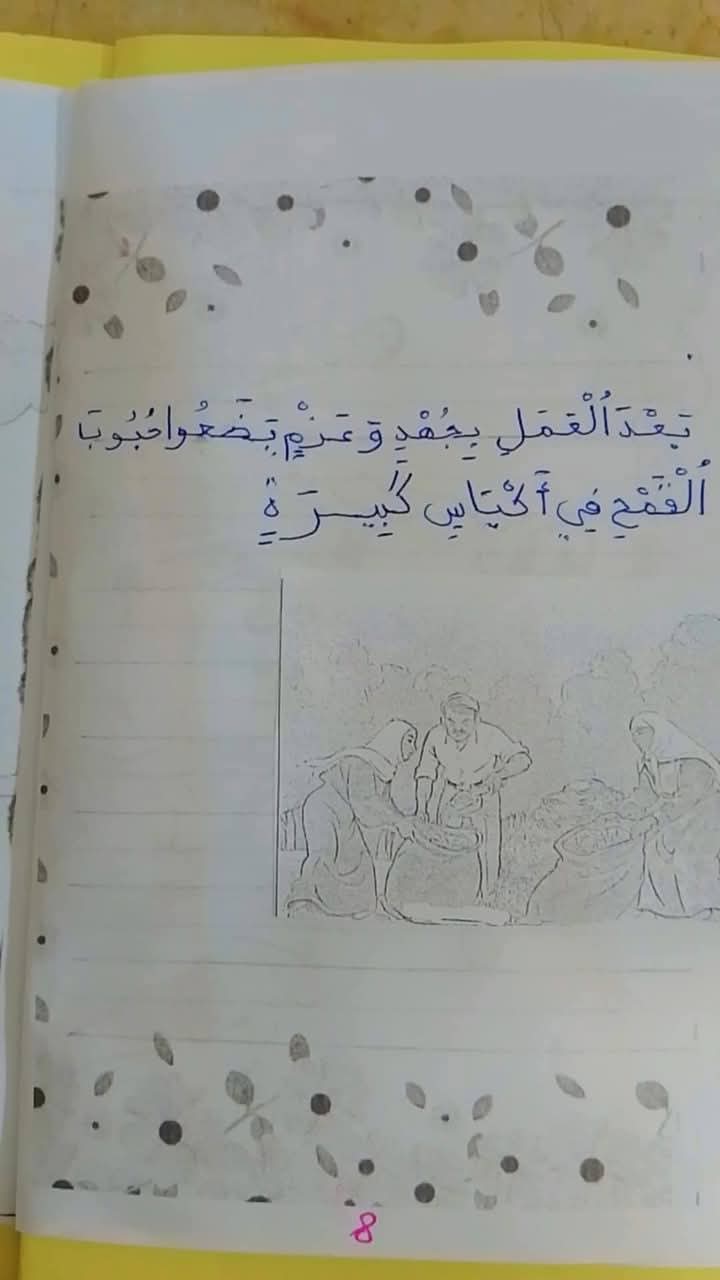 بَعْدَ اُلْعَمَلِ بِجُهْدٍ وَ عَزمٍ يَضَعُوا حُبُوبَا
اُلْقَمْحِ فِي أَكْيَاسٍ كَبِيرَةٍ
8